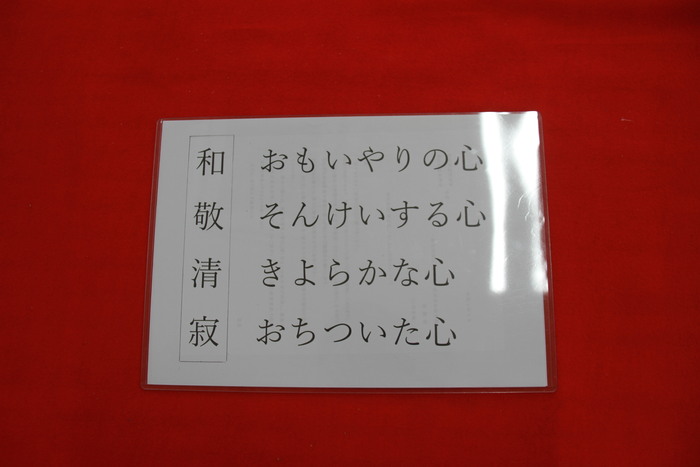 和 おもいやりの心
敬 そんけいする心
清 きよらかな心
寂 おちついた心